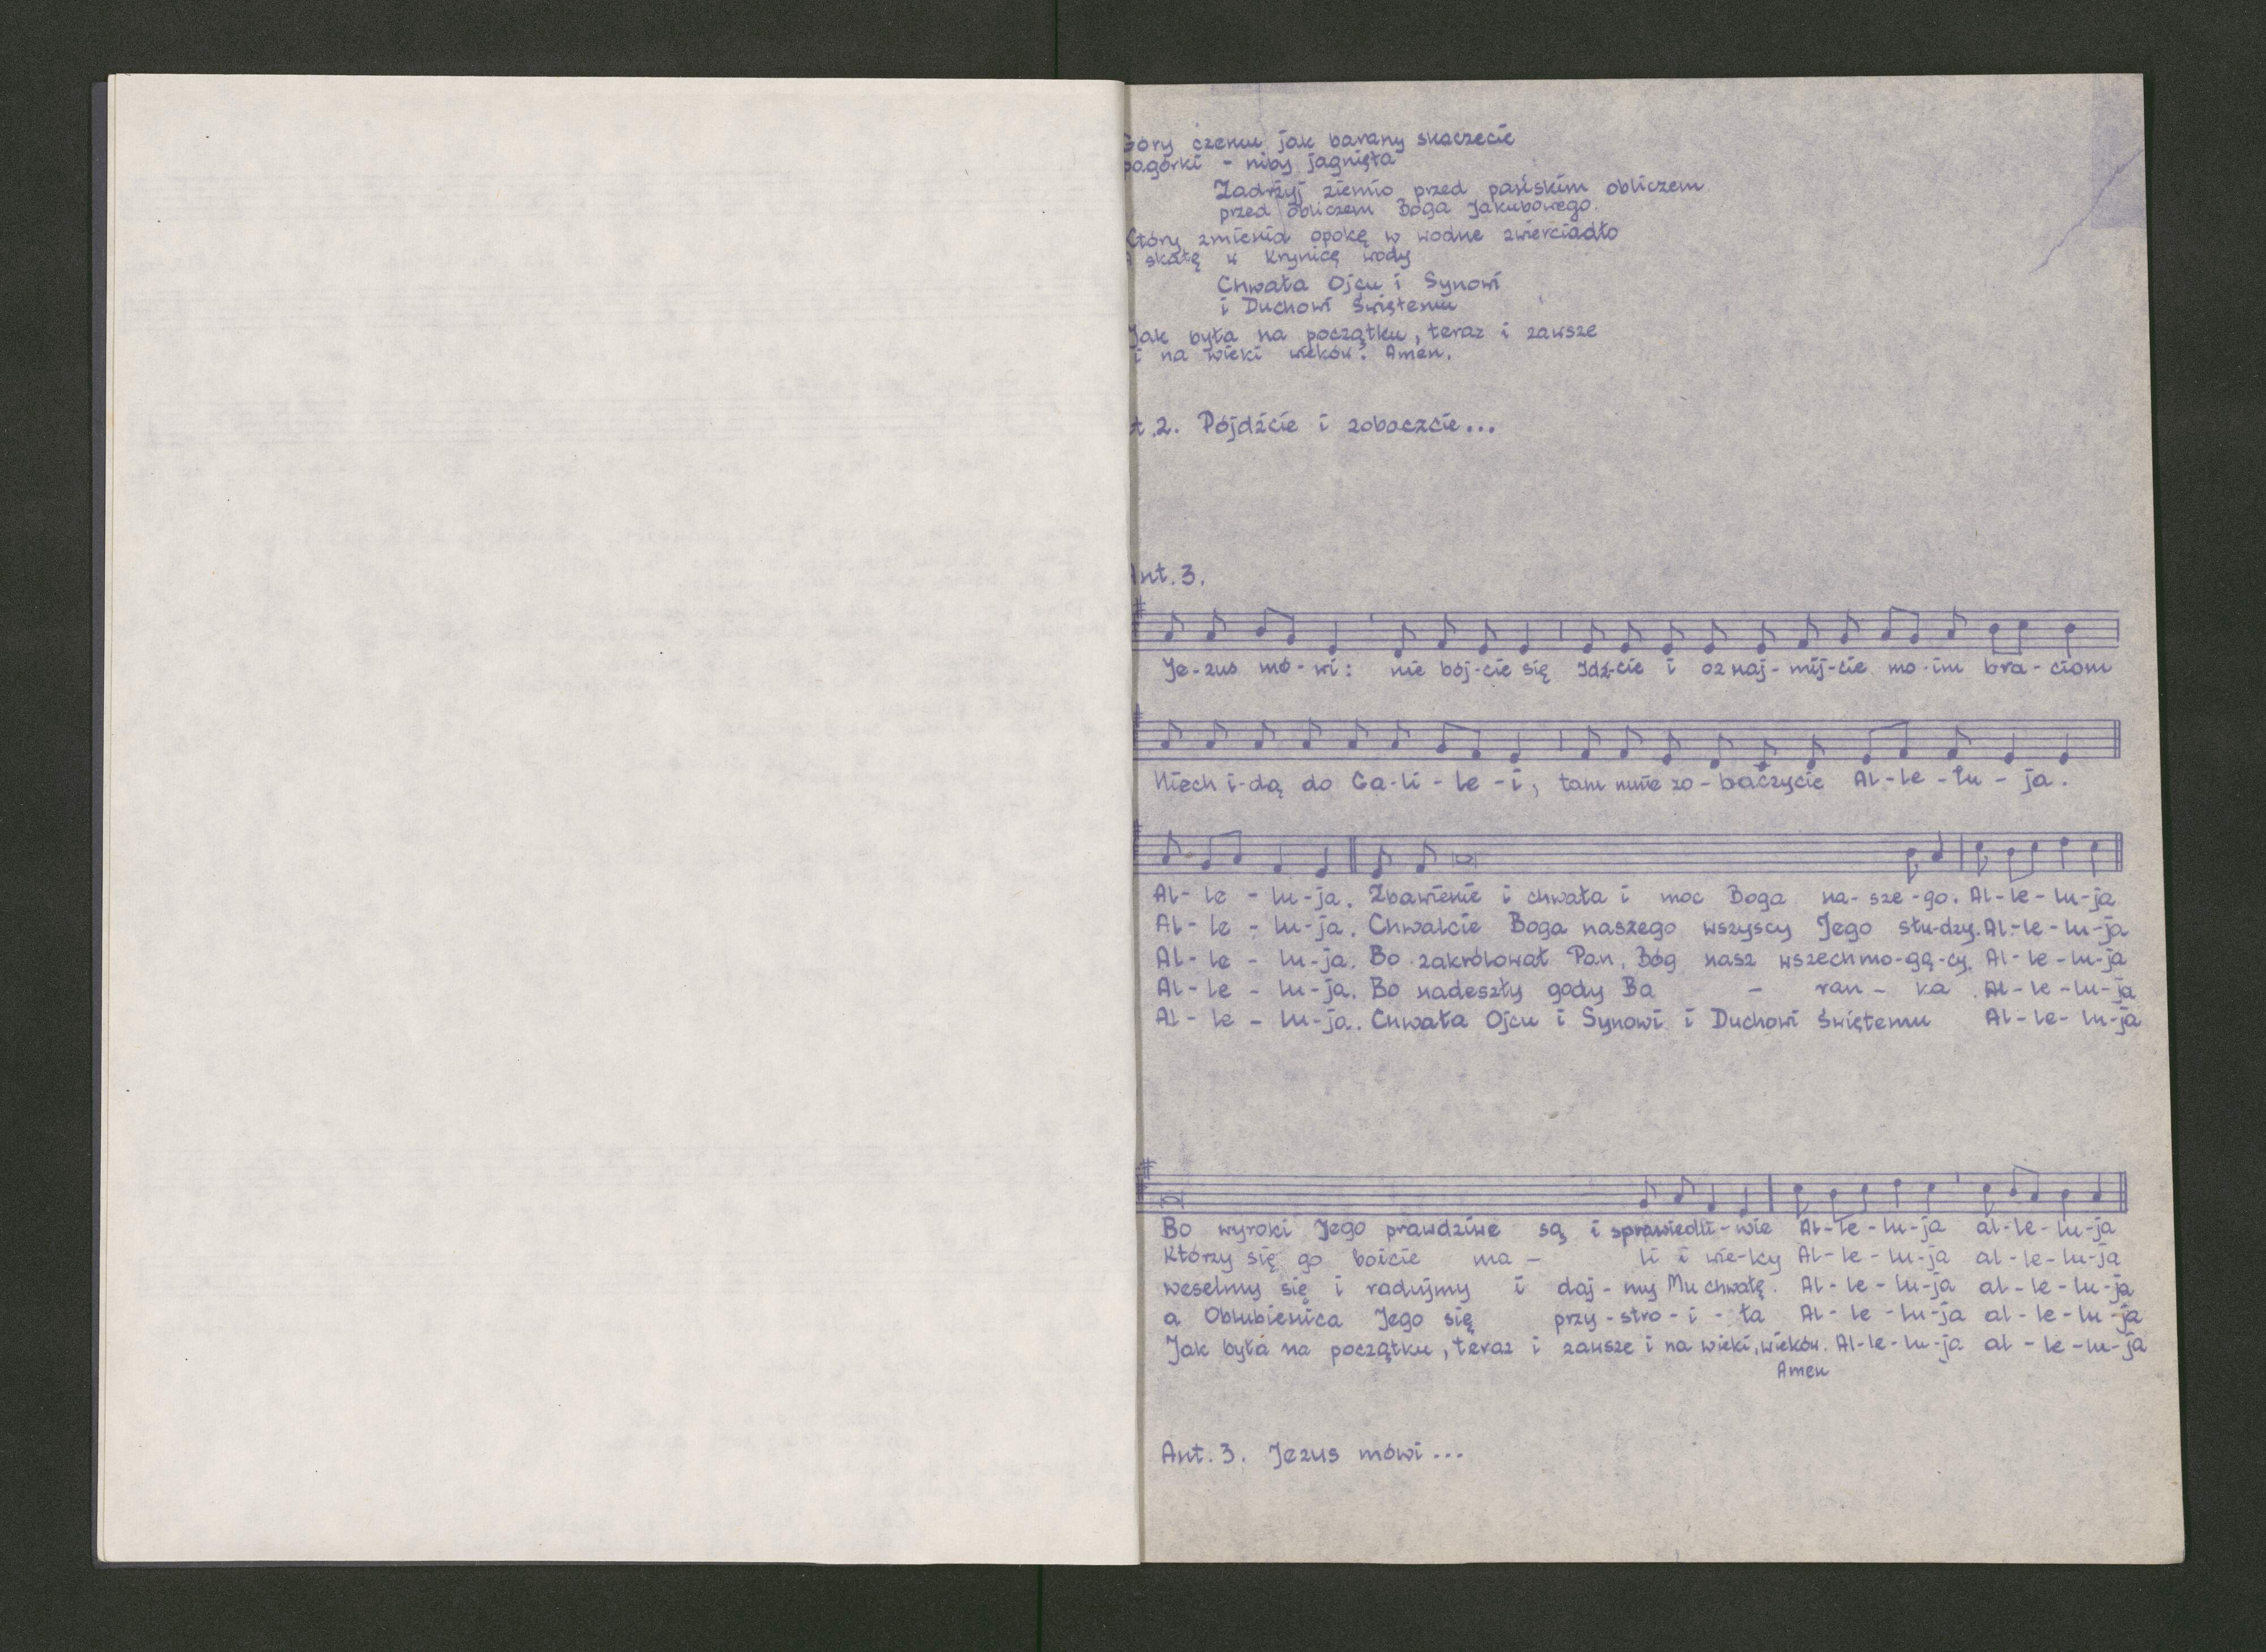 Góry czemu jak barany skaczecie
pagórki - niby jagnięta
Zadrżyj ziemio przed pańskim obliczem
przed obliczem Boga Jakubowego.
Który zmienia opokę w wodne zwierciadło
A skałę w krynicę wody
Chwała Ojcu i Synowi
i Duchowi Świętemu
Jak była na początku, teraz i zawsze
i na wieki wieków. Amen.
t.2. Pójdźcie i zobaczcie...
Ant.3.
Je-zus mó-wi: nie bój-cie się Idź-cie i oznaj-mij-cie mo-im bra-ciom
Niech i-dą do Ga-li-le-i, tam mnie zo-baczycie Al-le-lu-ja.
Al-le-lu-ja. Zbawienie i chwała i moc Boga na-sze-go. Al-le-lu-ja
Al-le-lu-ja. Chwalcie Boga naszego wszyscy Jego słu-dzy. Al-le-lu-ja
Al-le-lu-ja. Bo zakrólował Pan, Bóg nasz wszechmo-gą-cy. Al-le-lu-ja
Al-le-lu-ja. Bo nadeszły gody Ba - ran-ka. Al-le-lu-ja
Al-le-lu-ja. Chwała Ojcu i Synowi i Duchowi Świętemu Al-le-lu-ja
Bo wyroki Jego prawdziwe są i sprawiedli-wie Al-le-lu-ja al-le-lu-ja
Którzy się go boicie ma- li i wie-lcy Al-le-lu-ja al-le-lu-ja
weselmy się i radujmy i daj-my Mu chwałę. Al-le-lu-ja al-le-lu-ja
a Oblubienica Jego się przy-stro-i-ła Al-le-lu-ja al-le-lu-ja
Jak była na początku, teraz i zawsze i na wieki, wieków. Al-le-lu-ja al-le-lu-ja
Amen
Ant.3. Jezus mówi...